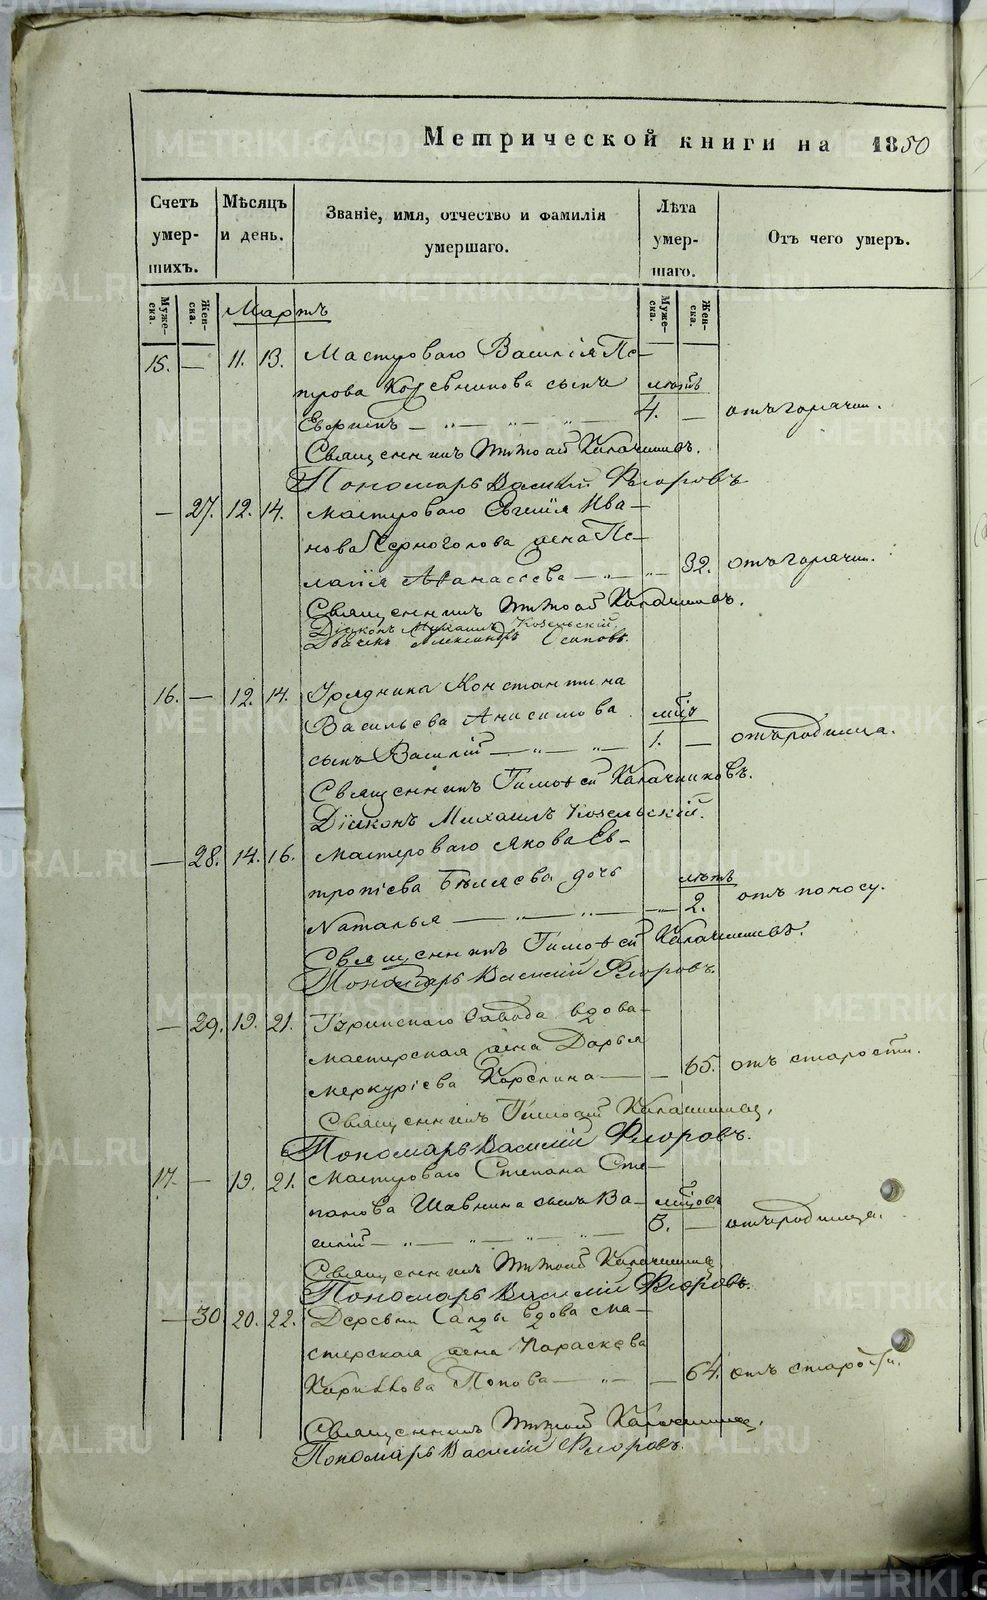 Метрической книги на 1850
Счетъ умер-шихъ. Мѣсяцъ и день. Званіе, имя, отчество и фамилія умершаго. Лѣта умер-шаго. Отъ чего умеръ.
Муже-ска. Жен-ска. Муже-ска. Жен-ска.
Мартъ
15. — 11. 13. Мастероваго Василія Пе-
трова сынъ лѣтъ
4. — отъ горячки.
Священникъ Тимоѳей Калачниковъ.
Пономарь Василій Флоровъ
— 27. 12. 14. Мастероваго Евгенія Ива-
нова Черноголова жена Пе-
лагія Аѳанасьева — 32. отъ горячки.
Священникъ Тимоѳей Калачниковъ.
Діяконъ Михаилъ Козельскій.
Дьячекъ Александръ Осиповъ.
16. — 12. 14. Урядника Константина
Васильева Анисимова мѣс.
сынъ Василій — 1. — отъ родимца.
Священникъ Тимоѳей Калачниковъ.
Діяконъ Михаилъ Козельскій.
— 28. 14. 16. Мастероваго Якова Ев-
тропіева Бѣляева дочь лѣтъ
Наталья — 2. отъ поносу.
Священникъ Тимоѳей Калачниковъ.
Пономарь Василій Флоровъ.
— 29. 19. 21. завода вдова
мастерская жена Дарья
Меркуріева — 65. отъ старости.
Священникъ Тимоѳей Калачниковъ.
Пономарь Василій Флоровъ.
17. — 19. 21. Мастероваго Степана Сте-
панова Шавнина сынъ Ва- мѣсяцовъ
силій — 3. — отъ родимца.
Священникъ Тимоѳей Калачниковъ
Пономарь Василій Флоровъ.
— 30. 20. 22. Деревни Салды вдова ма-
стерская жена Параскева
Попова — 64. отъ старости.
Священникъ Тимоѳей Калачниковъ.
Пономарь Василій Флоровъ.
METRIKI.GASO-URAL.RU